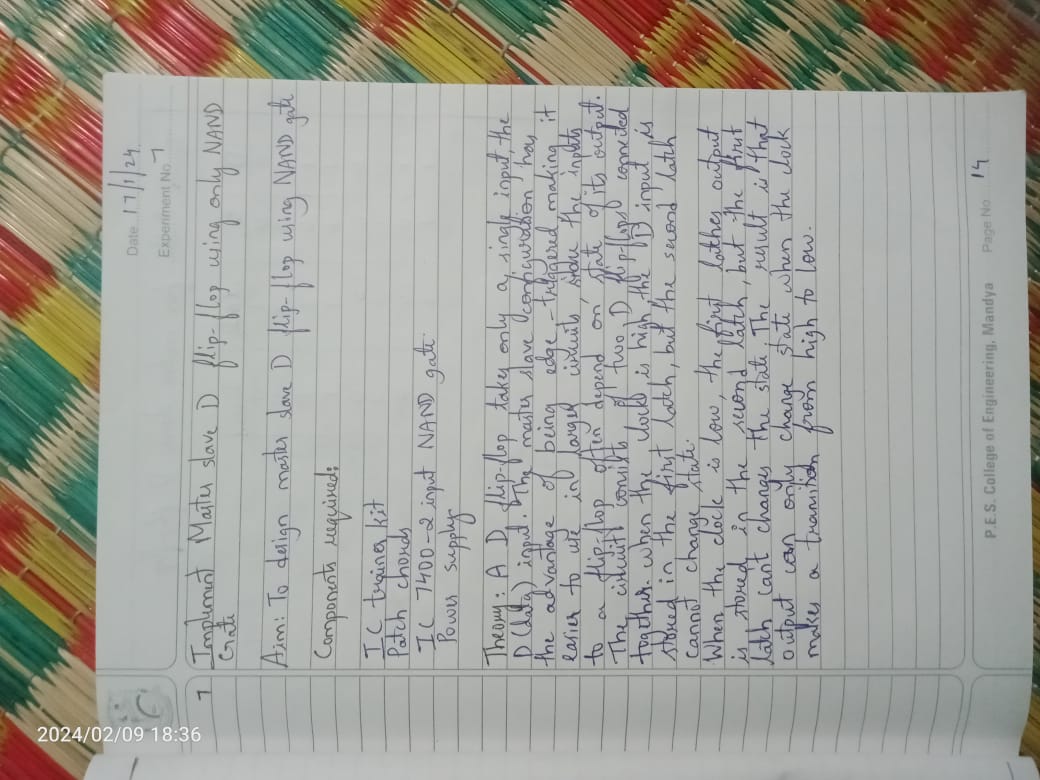 2024/02/09 18:36
Date 17/1/24
Experiment No. 7
7 Implement Master slave D flip-flop using only NAND
Gate
Aim: To design master slave D flip-flop using NAND gate
Components required:
IC trainer kit
Patch chords
IC 7400-2 input NAND gate
Power supply
Theory: A D flip-flop takes only a single input, the
D (data) input. The master slave configuration has
the advantage of being edge-triggered making it
easier to use in larger circuits, since the inputs
to a flip-flop often depend on state of its output.
The circuit consists of two D flip-flops connected
together. when the clock is high, the D input is
stored in the first latch, but the second latch
cannot change state.
When the clock is low, the first latches output
is stored in the second latch, but the first
latch can't changes the state. The result is that
output can only change state when the clock
makes a transition from high to low.
P.E.S. College of Engineering, Mandya Page No. 14